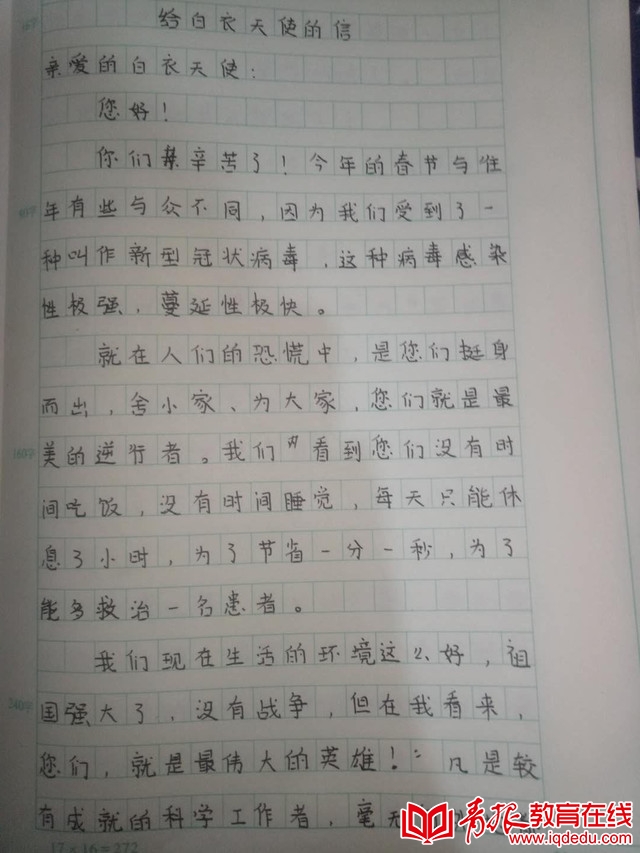 给白衣天使的信
亲爱的白衣天使：
您好！
你们辛苦了！今年的春节与往
年有些与众不同，因为我们受到了一
种叫作新型冠状病毒，这种病毒感染
性极强，蔓延性极快。
就在人们的恐慌中，是您们挺身
而出，舍小家、为大家，您们就是最
美的逆行者。我们看到您们没有时
间吃饭，没有时间睡觉，每天只能休
息3小时，为了节省一分一秒，为了
能多救治一名患者。
我们现在生活的环境这么好，祖
国强大了，没有战争，但在我看来，
您们，就是最伟大的英雄！“凡是较
有成就的科学工作者，毫无
17×16=272
青报教育在线
www.iqdedu.com